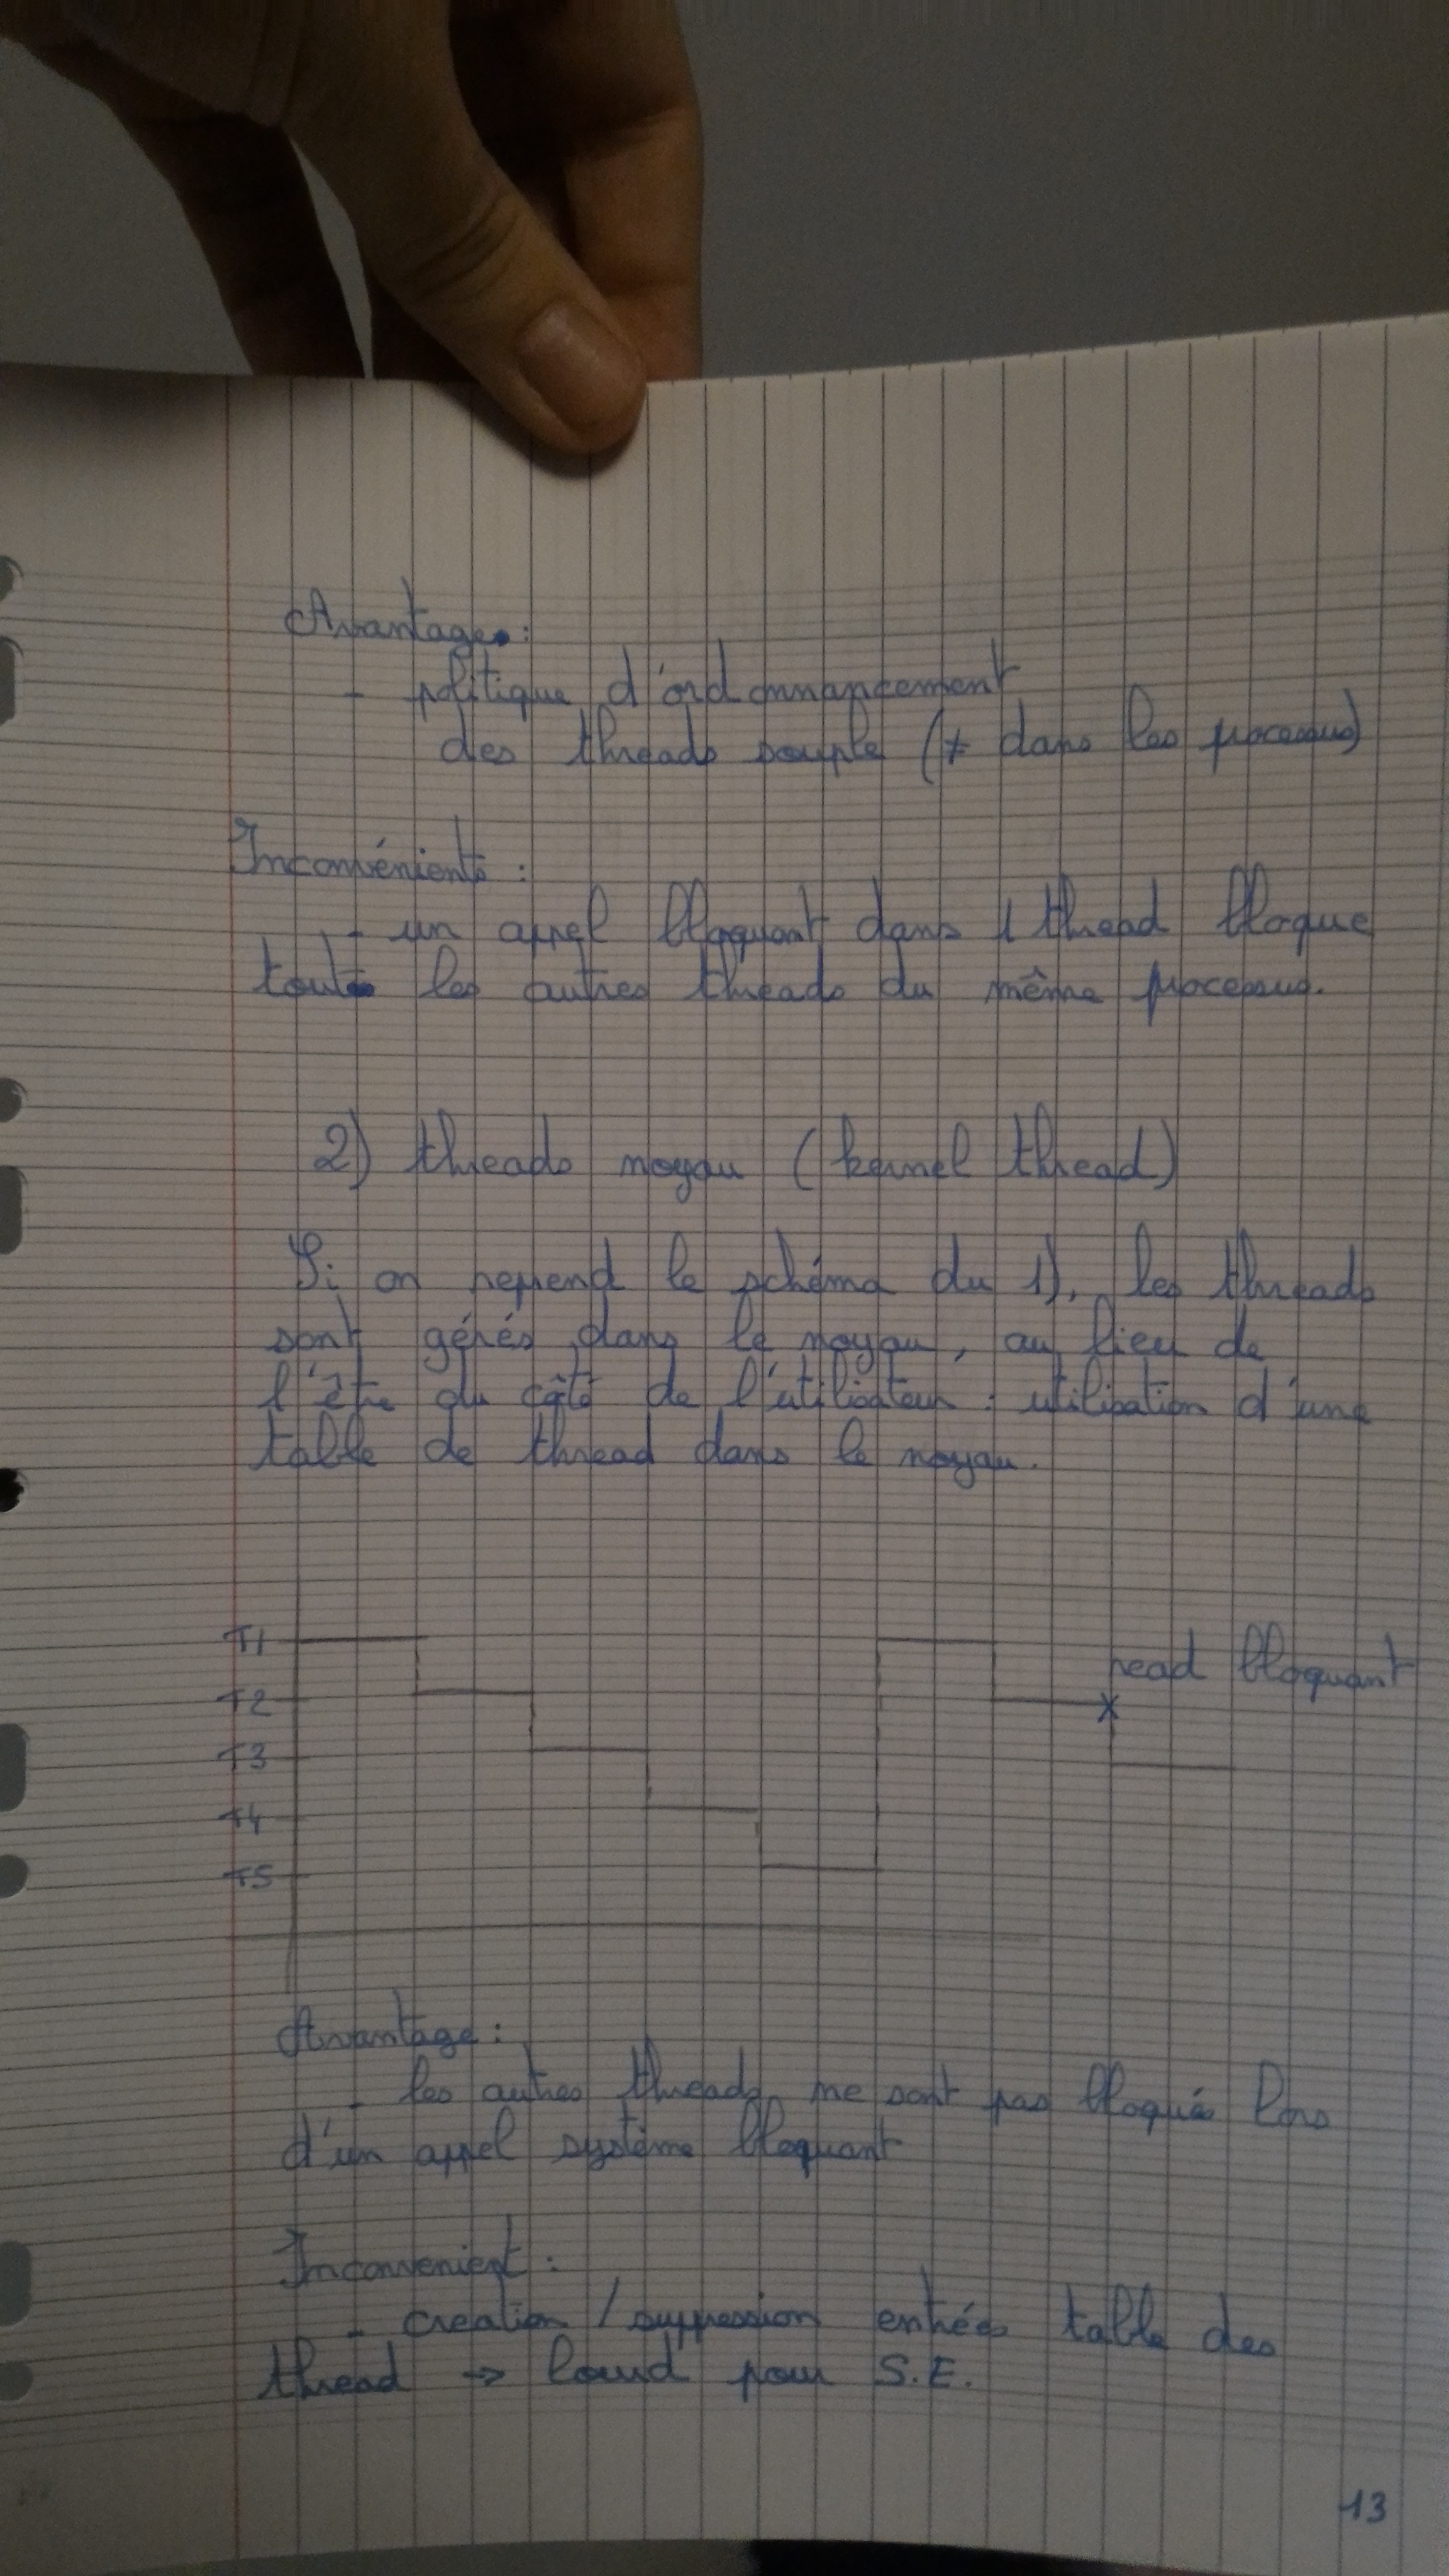 Avantage :
- politique d'ordonnancement
des threads souple (≠ dans les processus)
Inconvénients :
- un appel bloquant dans 1 thread bloque
touts les autres threads du même processus.
2) threads noyau (kernel thread)
Si on reprend le schéma du 1), les threads
sont gérés dans le noyau, au lieu de
l'être du côté de l'utilisateur : utilisation d'une
table de thread dans le noyau.
T1
read bloquant
T2
T3
T4
T5
Avantage :
- les autres threads ne sont pas bloqués lors
d'un appel système bloquant
Inconvenient :
- creation / suppression entrées table des
thread → lourd pour S.E.
13